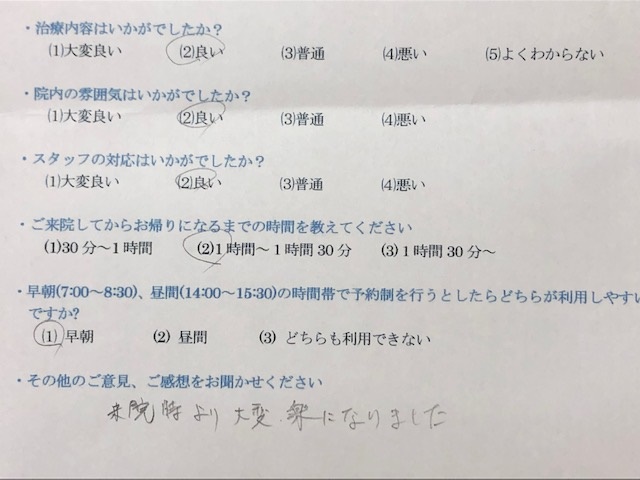 ・治療内容はいかがでしたか？
(1)大変良い (2)良い (3)普通 (4)悪い (5)よくわからない
・院内の雰囲気はいかがでしたか？
(1)大変良い (2)良い (3)普通 (4)悪い
・スタッフの対応はいかがでしたか？
(1)大変良い (2)良い (3)普通 (4)悪い
・ご来院してからお帰りになるまでの時間を教えてください
(1)30分～1時間 (2)1時間～1時間30分 (3)1時間30分～
・早朝(7:00～8:30)、昼間(14:00～15:30)の時間帯で予約制を行うとしたらどちらが利用しやすい
ですか?
(1)早朝 (2) 昼間 (3) どちらも利用できない
・その他のご意見、ご感想をお聞かせください
来院時より大変楽になりました